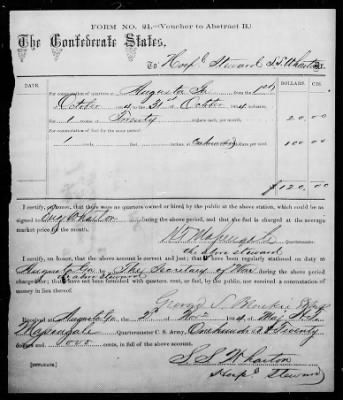 FORM NO. 21.—Voucher to Abstract B.
The Confederate States,
To Hosp'l Steward S. S. Wharton
DATE. DOLLARS. CTS.
For commutation of quarters at Augusta Ga from 1st
October 4 to 31st October 4
For 1 rooms at Twenty 20 00
For commutation of fuel for the same period:
1 cords 100 00
$120.00
I certify, on honor, that there were no quarters owned or hired by the public at the above station, which could be assigned to during the above period, and that the fuel is charged at the average market price of the month.
Quartermaster.
the above steward
I certify, on honor, that the above account is correct and just; that have been regularly stationed on duty at Augusta Ga by The Secretary of War during the above period
charged for; that have not been furnished with quarters, rent or fuel, by the public, nor received a commutation of money in lieu thereof.
Received at Augusta Ga the 2d of Nov 4 of Maj
Quartermaster C. S. Army, One hundred & Twenty
dollars and cents, in full of the above account.
S. S. Wharton
Hosp'l Steward
[DUPLICATE.]